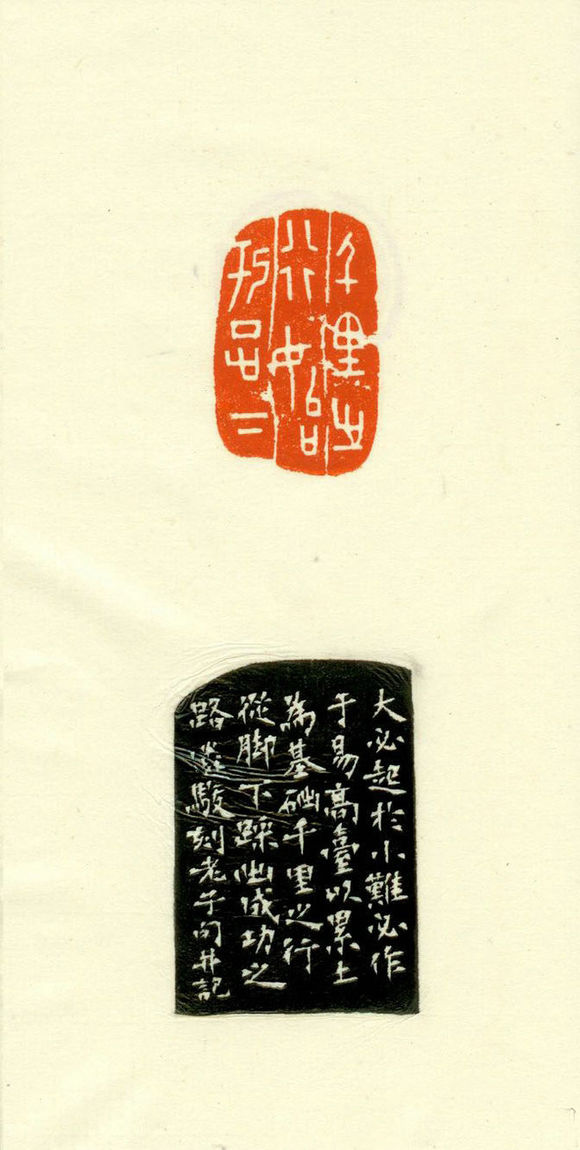 千里之
行始
於足下
大必起於小難必作
于易高臺以累土
為基础千里之行
從脚下踩出成功之
路駿刻老子句并記